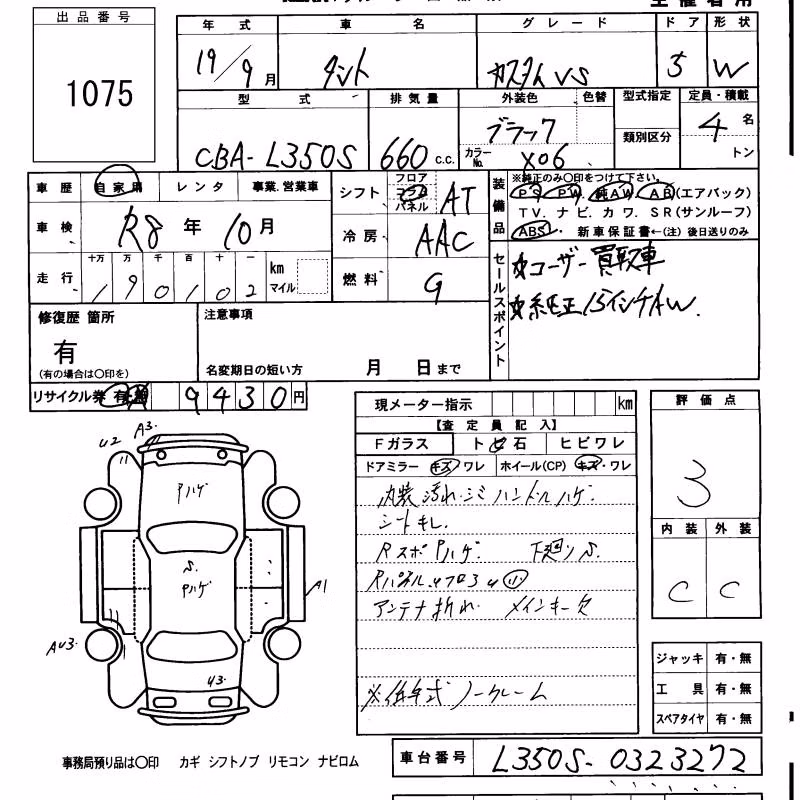 出品番号
1075
年式 車名 グレード ドア 形状
19/9月 タント カスタムVS 5 W
型式 排気量 外装色 色替 型式指定 定員・積載
CBA-L350S 660 c.c. ブラック 類別区分 4名
カラーNo. X06 トン
車歴 自家用 レンタ 事業.営業車
車検 R8年10月
走行 十万 万 千 百 十 一
190102 km マイル
シフト フロア コラム パネル AT
冷房 AAC
燃料 G
装備品
※純正のみ〇印をつけて下さい。
PS. PW. 純AW. AB(エアバック)
TV. ナビ. カワ. SR(サンルーフ)
ABS. 新車保証書←(注) 後日送りのみ
セールスポイント
☆ユーザー買取車
☆純正15インチAW.
修復歴 箇所
有
(有の場合は〇印を)
注意事項
名変期日の短い方 月 日まで
リサイクル券 有・無 9430円
現メーター指示 km
【査定員記入】
Fガラス トビ石 ヒビワレ
ドアミラー キズ・ワレ ホイール(CP) キズ・ワレ
内装汚れ.シミ ハンドルハゲ.
シートキレ.
RスポPハゲ. 下廻りS.
アンテナ折れ. メインキー欠
※低年式 ノークレーム
評価点
3
内装 外装
C C
ジャッキ 有・無
工具 有・無
スペアタイヤ 有・無
U2 A3.
Pハゲ
S.
Pハゲ
A1
AU3.
U3.
事務局預り品は〇印 カギ シフトノブ リモコン ナビロム
車台番号 L350S-0323272